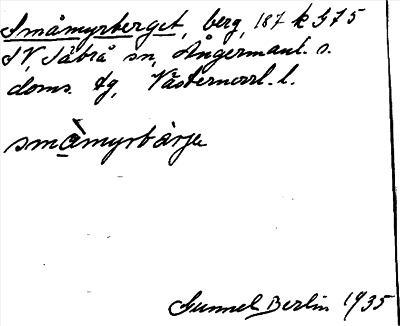 Småmyrberget, berg, 187 k 375
SV, Säbrå sn, Ångermanl. s.
doms. tg, Västernorrl. l.
småmyrbärje
Gunnel Berlin 1935